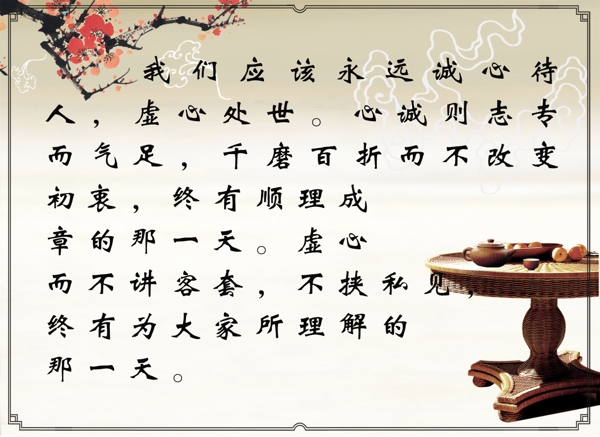 我们应该永远诚心待
人，虚心处世。心诚则志专
而气足，千磨百折而不改变
初衷，终有顺理成
章的那一天。虚心
而不讲客套，不挟私见，
终有为大家所理解的
那一天。